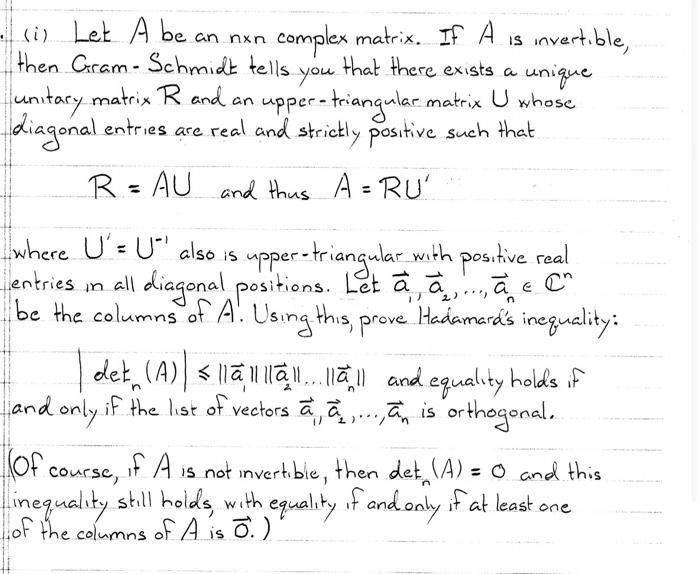 (i) Let A be an nxn complex matrix. If A is invertible,
then Gram-Schmidt tells you that there exists a unique
unitary matrix R and an upper-triangular matrix U whose
diagonal entries are real and strictly positive such that
R = AU and thus A = RU'
where U' = U⁻¹ also is upper-triangular with positive real
entries in all diagonal positions. Let a⃗₁, a⃗₂, ..., a⃗ₙ ∈ ℂⁿ
be the columns of A. Using this, prove Hadamard's inequality:
|detₙ(A)| ≤ ‖a⃗₁‖ ‖a⃗₂‖ ... ‖a⃗ₙ‖ and equality holds if
and only if the list of vectors a⃗₁, a⃗₂, ..., a⃗ₙ is orthogonal.
(Of course, if A is not invertible, then detₙ(A) = 0 and this
inequality still holds, with equality if and only if at least one
of the columns of A is 0⃗.)